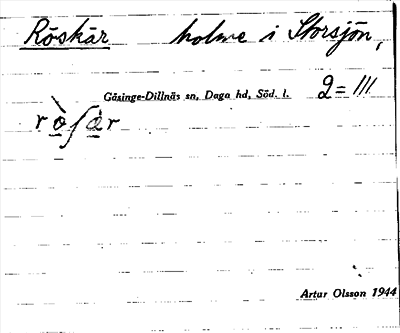 Röskär holme i Storsjön,
Gåsinge-Dillnäs sn, Daga hd, Söd. l. 2 = III
Artur Olsson 1944